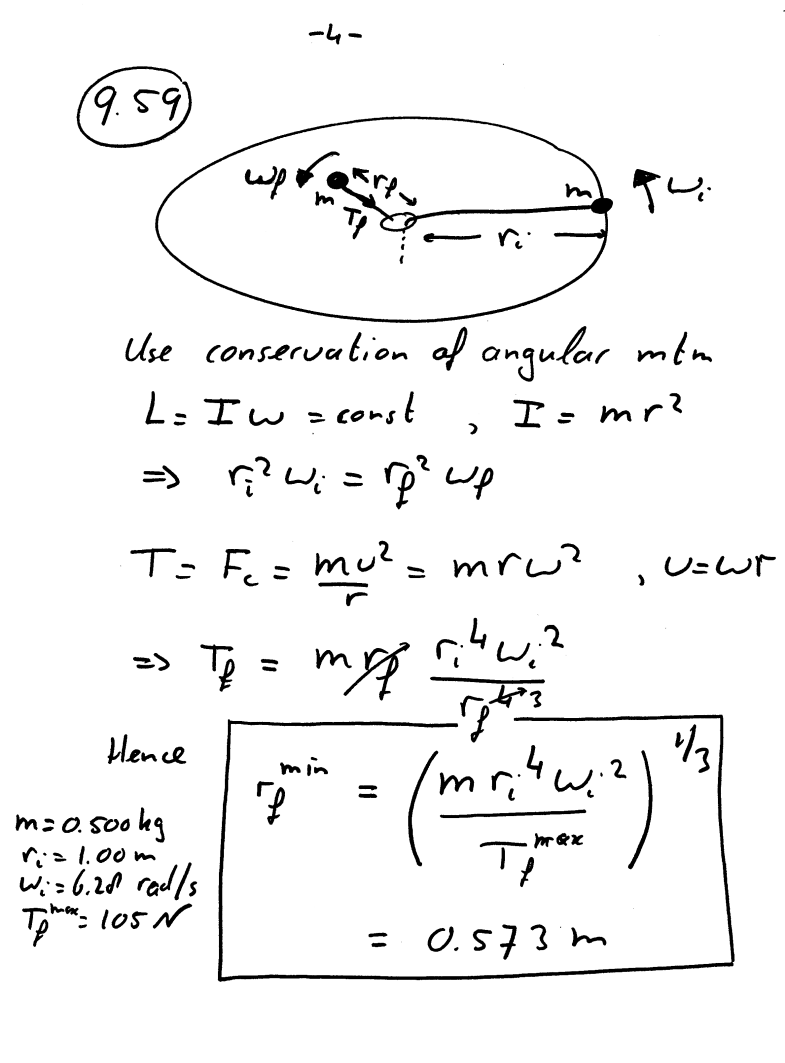 -4-
9.59
ωf m rf Tf m ωi
ri
Use conservation of angular mtm
L = Iω = const , I = mr²
=> ri² ωi = rf² ωf
T = Fc = mv²/r = mrω² , v=ωr
=> Tf = m rf ri⁴ωi² / rf⁴ ³
Hence
rf^min = (m ri⁴ ωi² / Tf^max)^1/3
m = 0.500 kg
ri = 1.00 m
ωi = 6.28 rad/s
Tf^max = 105 N
= 0.573 m